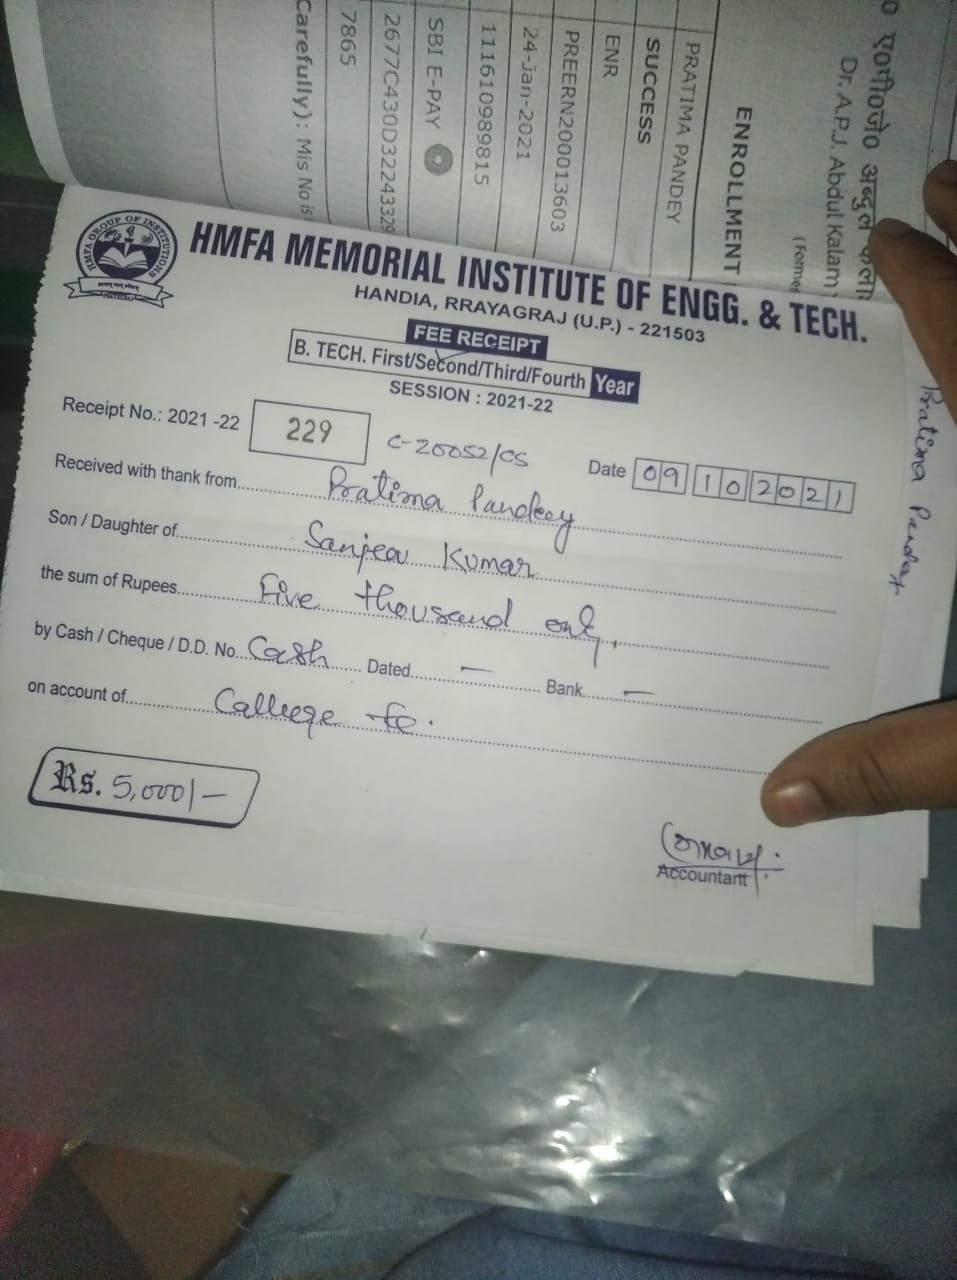 एoपीoजेo अब्दुल कला
Dr. A.P.J. Abdul Kalam
(Former
ENROLLMENT
PRATIMA PANDEY
SUCCESS
ENR
PREERN200013603
24-Jan-2021
11161098981​5
SBI E-PAY
2677C430D32243329
7865
Carefully): Mis No is
HMFA GROUP OF INSTITUTIONS
HMFA MEMORIAL INSTITUTE OF ENGG. & TECH.
HANDIA, RRAYAGRAJ (U.P.) - 221503
FEE RECEIPT
B. TECH. First/Second/Third/Fourth Year
SESSION : 2021-22
Receipt No.: 2021 -22 229 C-20052/CS Date 09 10 2021
Received with thank from Pratima Pandey
Son / Daughter of Sanjeev Kumar
the sum of Rupees Five thousand only.
by Cash / Cheque / D.D. No. Cash Dated — Bank —
on account of College fe.
Rs. 5,000/-
Accountant
Pratima Pandey